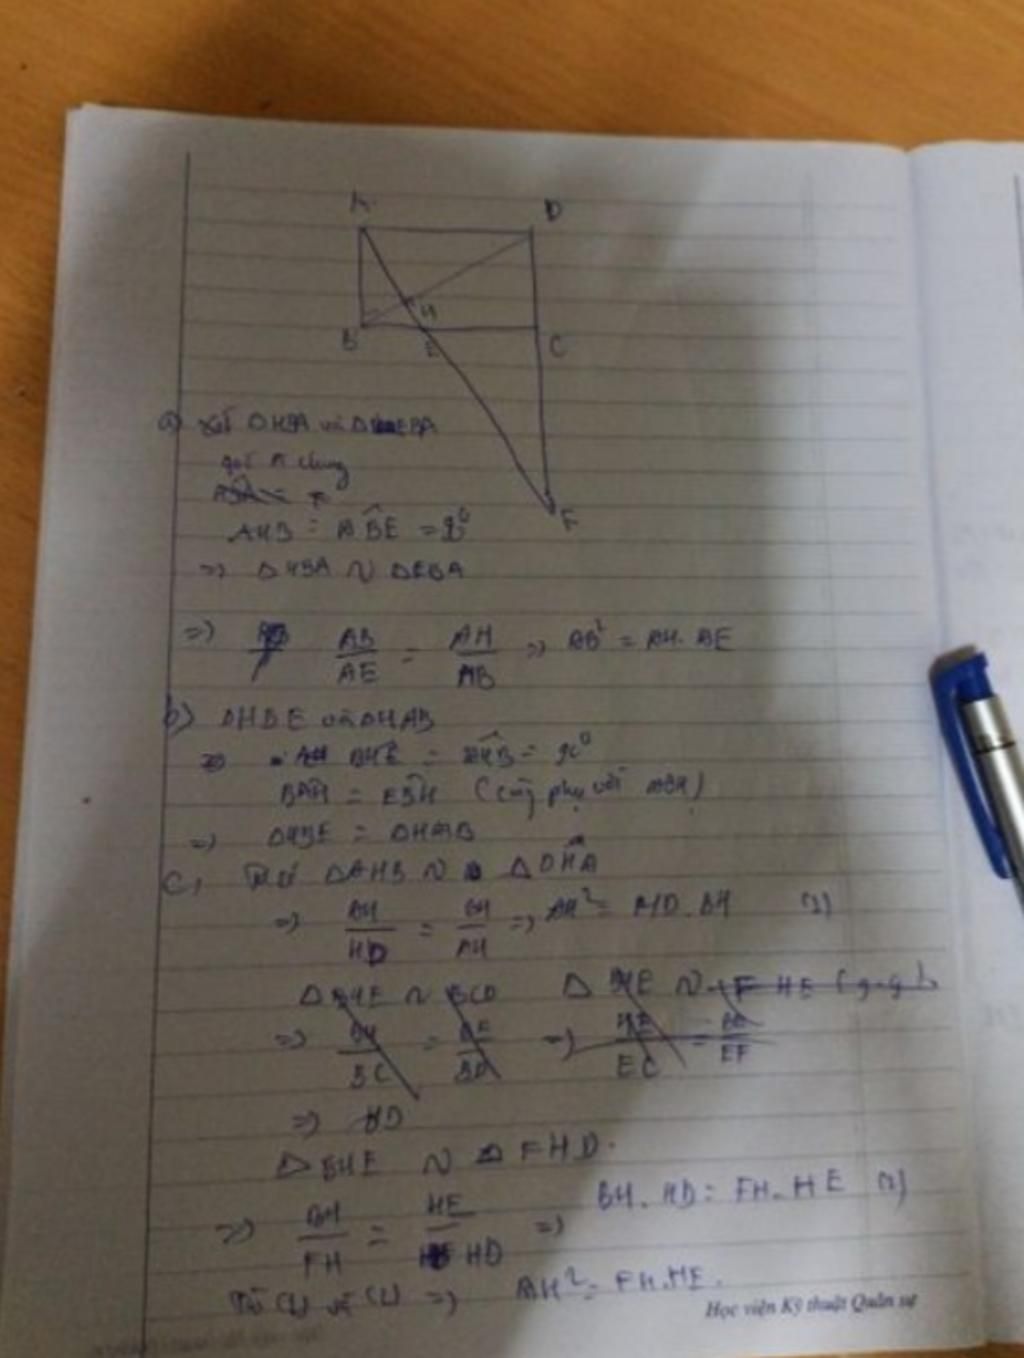 A
D
H
B
E
C
a) xét ΔHBA và ΔEBA
góc A chung
F
AHB = ABE = 90°
=> ΔHBA ~ ΔEBA
=> AB/AE = AH/AB => AB² = AH.AE
b) ΔHBE và ΔHAB
BHE = AHB = 90°
BAH = EBH (cùng phụ với ABH)
=> ΔHBE = ΔHAB
c, ΔAHB ~ ΔDHA
=> AH/HD = BH/AH => AH² = HD.BH (1)
ΔBHE ~ BCD Δ BHE ~ FHE (g-g)
=> BH/BC = BE/BD => HE/EC = BE/EF
=> HD
Δ BHE ~ Δ FHD.
=> BH/FH = HE/HD => BH.HD = FH.HE (2)
Từ (1) và (2) => AH² = FH.HE.
Học viện Kỹ thuật Quân sự